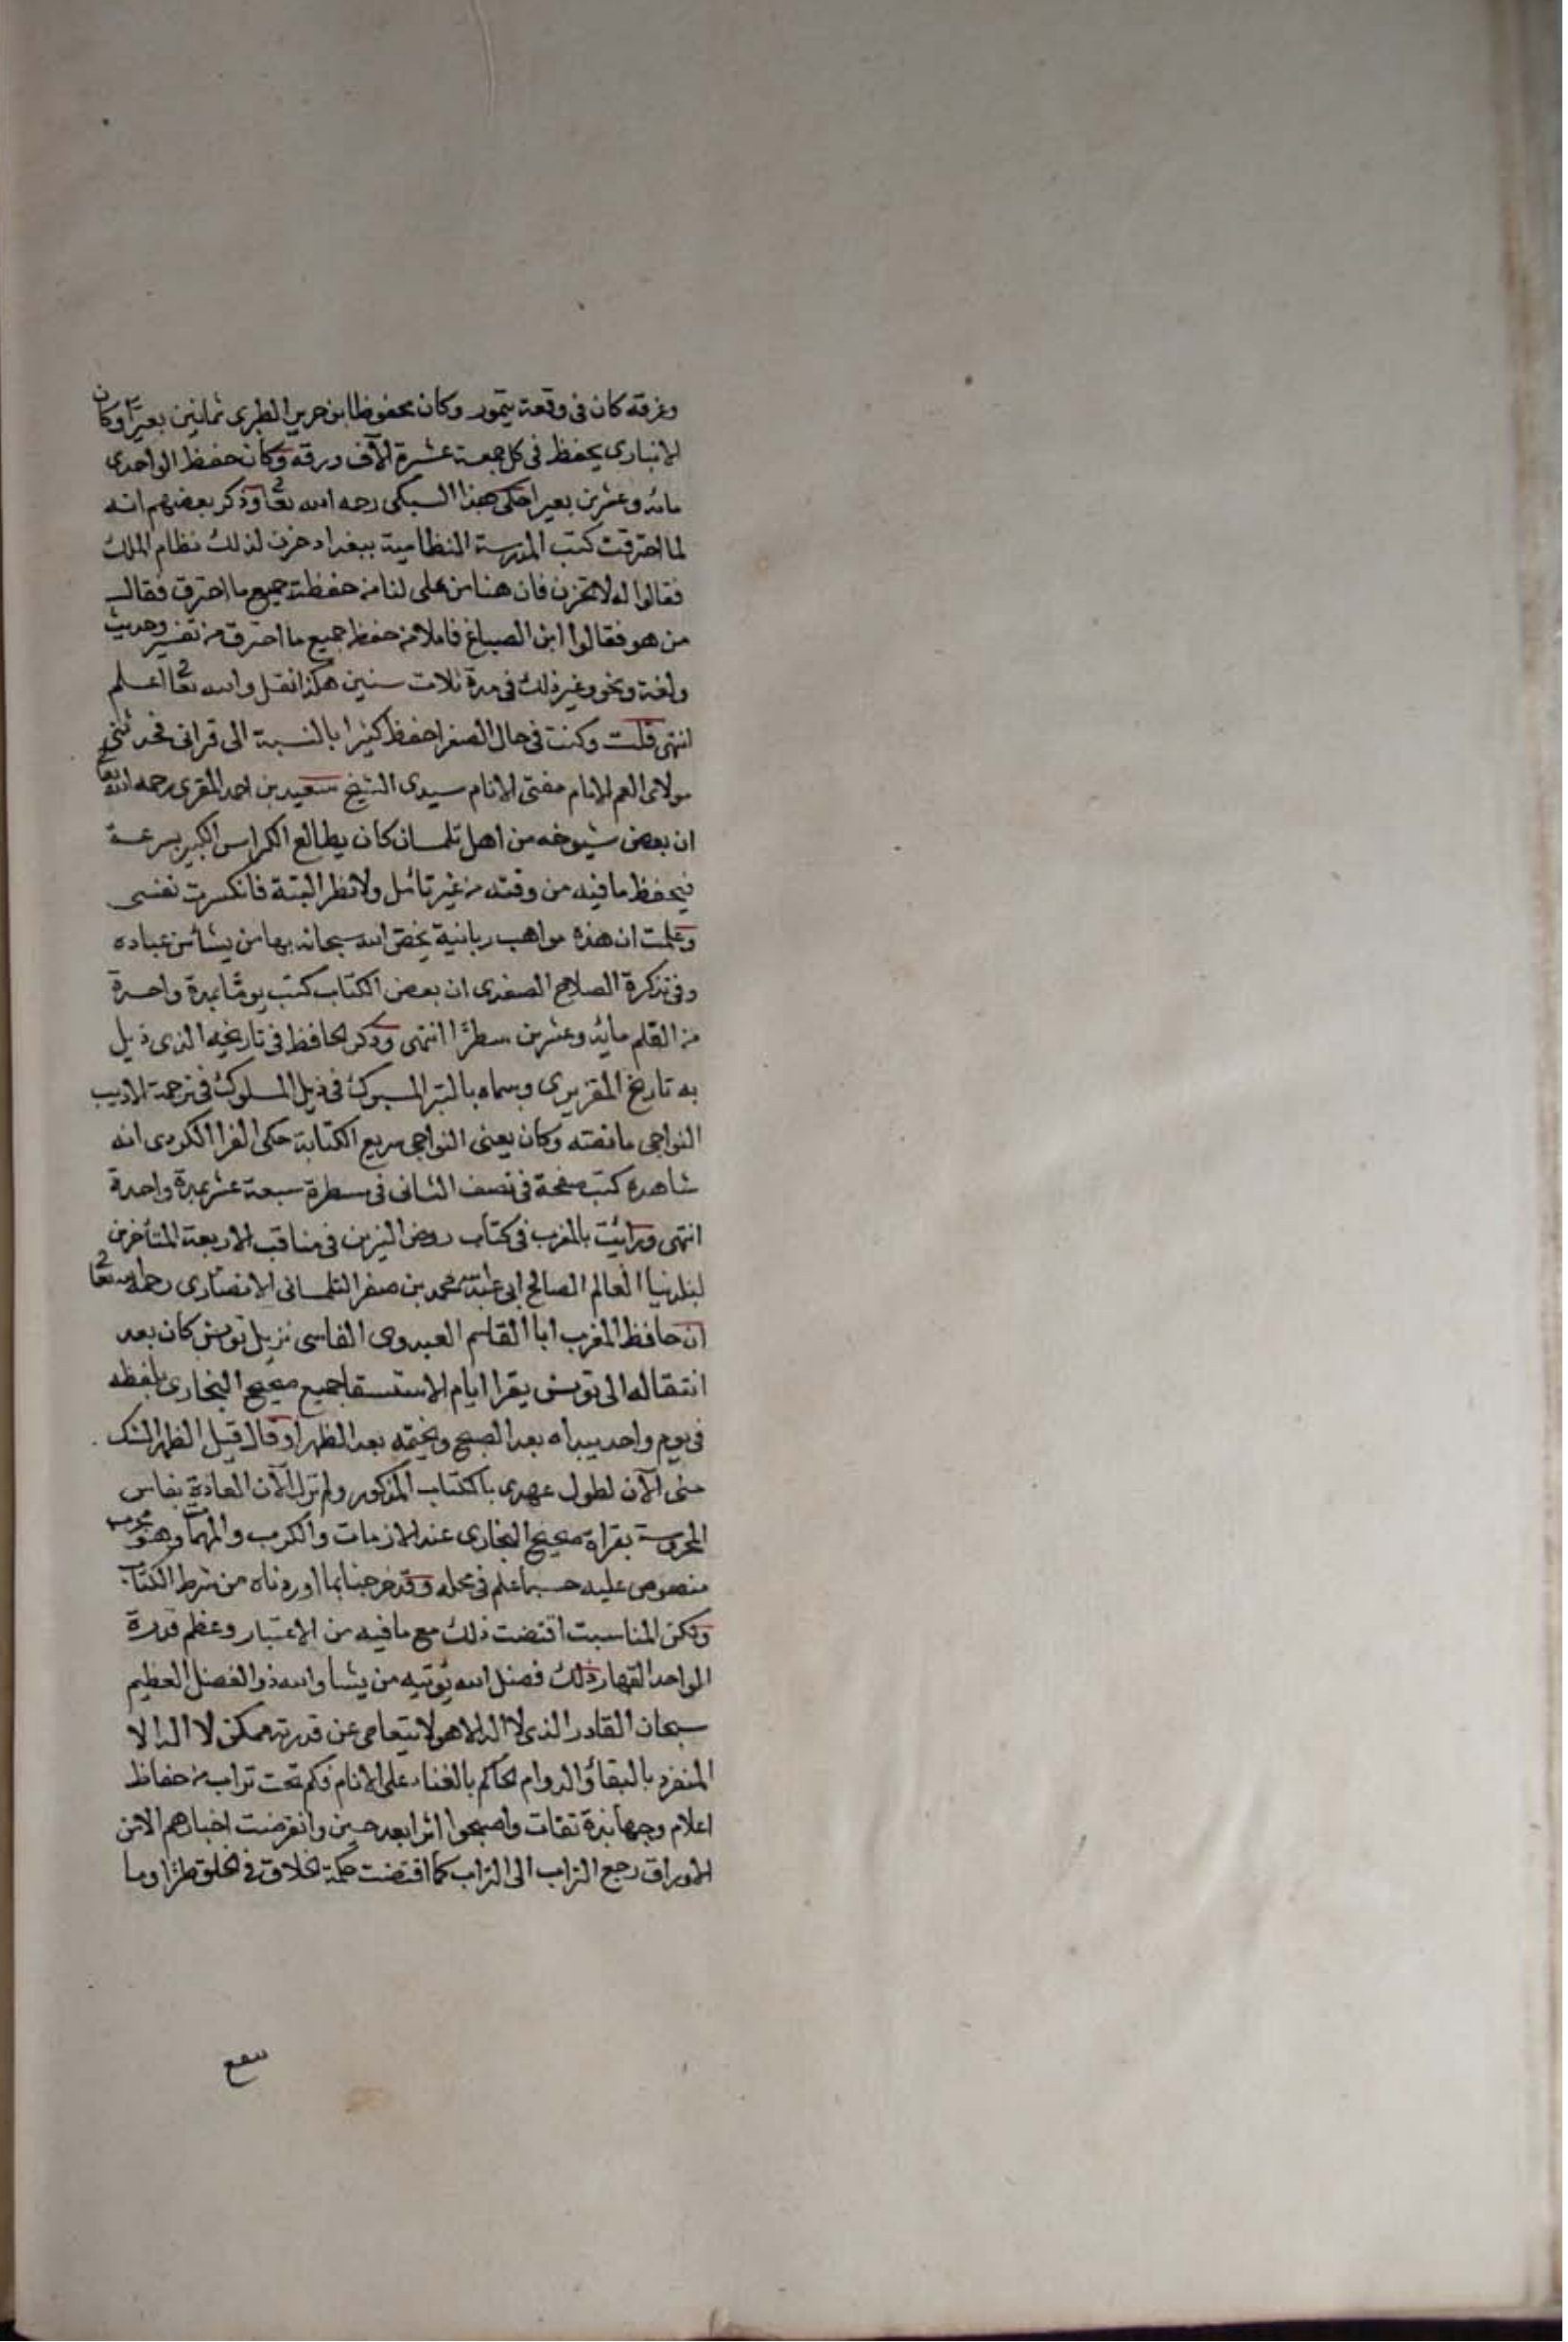 وغرقه كان فى وقعة تيمور وكان محفوظ ابن جرير الطبرى ثمانين بعيرًا وكان
الانبارى يحفظ فى كل جمعة عشرة الآف ورقه وكان حفظ الواحدى
مائه وعشرين بعيرا حكى هذا السبكى رحمه الله تعا وذكر بعضهم انه
لما احترقت كتب المدرسة النظامية ببغداد حزن لذلك نظام الملك
فقالوا له لا تحزن فان هنا من يملى لنا من حفظه جميع ما احترق فقال
من هو فقالوا ابن الصباغ فاملا من حفظه جميع ما احترق من تفسير وحديث
ولغة ونحو وغير ذلك فى مدة ثلاث سنين هكذا نقل والله تعا اعلم
انتهى قلت وكنت فى حال الصغر احفظ كثيرا بالنسبة الى قرانى فحدثنى
مولاى العم الامام مفتى الانام سيدى الشيخ سعيد بن احمد المقرى رحمه الله تعا
ان بعض شيوخه من اهل تلمسان كان يطالع الكراس الكبير بسرعة
فيحفظ ما فيه من وقته من غير تأمل ولا نظر البتة فانكسرت نفسى
وعلمت ان هذه مواهب ربانية يخص الله سبحانه بها من يشأ من عباده
وفى تذكرة الصلاح الصفدى ان بعض الكتاب كتب يومًا بمدة واحدة
من القلم مأيه وعشرين سطرًا انتهى وذكر الحافظ فى تاريخه الذى ذيل
به تاريخ المقريزى وسماه بالتبر المسبوك فى ذيل السلوك فى ترجمة الاديب
النواجى ما نصه وكان يعنى النواجى سريع الكتابة حكى الغزا الكردى انه
شاهده كتب صفحة فى نصف الشانى فى مسطرة سبعة عشر بمدة واحدة
انتهى ورأيت بالمغرب فى كتاب روض النيرين فى مناقب الاربعة المتأخرين
لبلدنيا العالم الصالح ابى عبد الله محمد بن صغر التلمسانى الانصارى رحمه الله تعا
ان حافظ المغرب ابا القاسم العبدوسى الفاسى نزيل تونس كان بعد
انتقاله الى تونس يقرا ايام الاستسقا جميع صحيح البخارى بلفظه
فى يوم واحد يبداه بعد الصبح ويختمه بعد الظهر او قال قبل الظهر الشك
منى الآن لطول عهدى بالكتاب المذكور ولم تزل الآن العادة بفاس
المحروسة بقراة صحيح البخارى عند الازمات والكرب والمهمات وهو مجرب
منصوص عليه حسبما علم فى محله وقد خرجنا بما اوردناه من شرط الكتاب
ولكن المناسبت اقتضت ذلك مع ما فيه من الاعتبار وعظم قدرة
الواحد القهار ذلك فضل الله يؤتيه من يشا والله ذو الفضل العظيم
سبحان القادر الذى لا اله الا هو لا يتعاصى عن قدرته ممكن لا اله الا
المنفرد بالبقا والدوام الحاكم بالفناء على الانام فكم تحت تراب من حفاظ
اعلام وجهابذة ثقات واصبحوا اثرا بعد حين وانقرضت اخبارهم الا من
الاوراق رجع التراب الى التراب كما اقتضت حكمة الخلاق فى الخلق طرًا وما